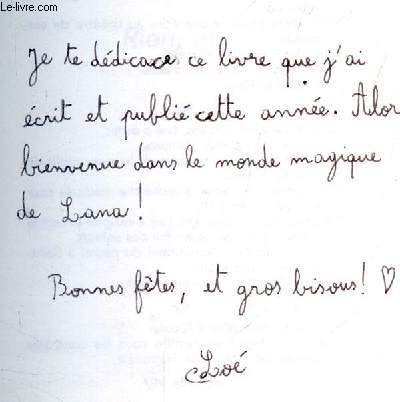 Le-livre.com
Je te dédicace ce livre que j'ai
écrit et publié cette année. Alor
bienvenue dans le monde magique
de Lana !
Bonnes fêtes, et gros bisous ! ♡
Loé